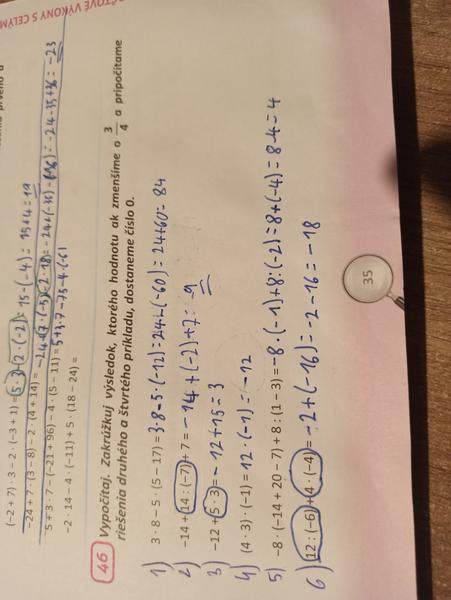 OČTOVÉ VÝKONY S CELÝM
(−2 + 7) · 3 − 2 · (−3 + 1) = 5·3 − 2·(−2) = 15−(−4) = 15+4 = 19
−24 + 7 · (3 − 8) − 2 · (4 + 14) = −24+7·(−5)−2·18 = −24+(−35)−(−36) = −24−35+36 = −23
5 + 3 · 7 − (−21 + 96) − 4 · (5 − 11) = 5+3·7−75−4·(−6)
−2 · 14 − 4 · (−11) + 5 · (18 − 24) =
46 Vypočítaj. Zakrúžkuj výsledok, ktorého hodnotu ak zmenšíme o 3/4 a pripočítame
riešenia druhého a štvrtého príkladu, dostaneme číslo 0.
1) 3 · 8 − 5 · (5 − 17) = 3·8−5·(−12) = 24+(−60) = 24+60 = 84
2) −14 + 14 : (−7) + 7 = −14 + (−2)+7 = −9
3) −12 + 5 · 3 = −12+15 = 3
4) (4 · 3) : (−1) = 12·(−1) = −12
5) −8 · (−14 + 20 − 7) + 8 : (1 − 3) = −8·(−1)+8:(−2) = 8+(−4) = 8−4 = 4
6) 12 : (−6) + 4 · (−4) = −2+(−16) = −2−16 = −18
35